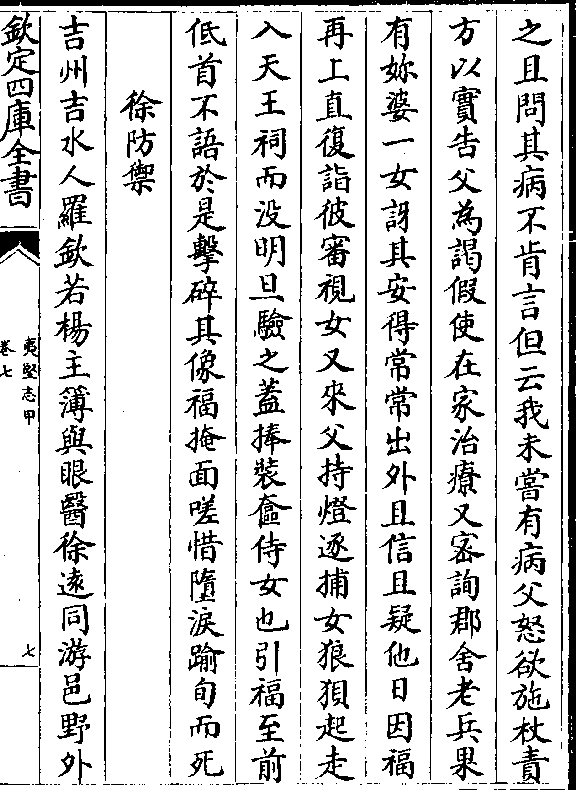 之且問其病不肯言但云我未嘗有病父怒欲施杖責
方以實告父為謁假使在家治療又密詢郡舍老兵果
有妳婆一女訝其安得常常出外且信且疑他日因福
再上直復詣彼審視女又來父持燈逐捕女狼狽起走
入天王祠而没明旦驗之蓋捧裝奩侍女也引福至前
低首不語於是擊碎其像福掩面嗟惜墮淚踰旬而死
徐防禦
吉州吉水人羅欽若楊主簿與眼醫徐逺同游邑野外
欽定四庫全書
夷堅志甲
卷七
七